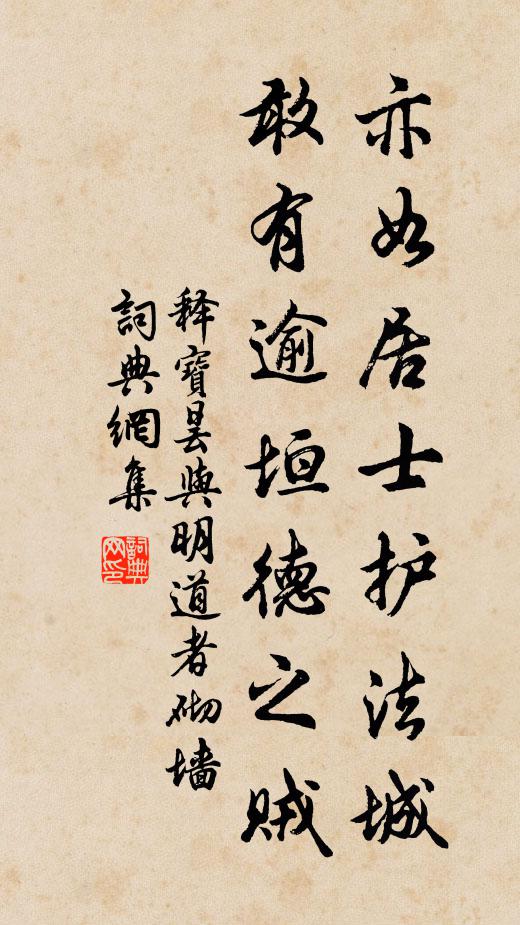 亦如居士护法城
敢有逾垣德之贼
释寶昙與明道者砌墙
詞典網集
詞典网印